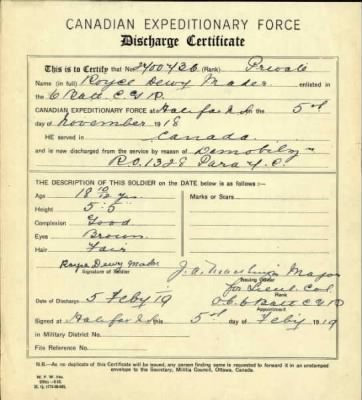 CANADIAN EXPEDITIONARY FORCE
Discharge Certificate
This is to Certify that No. 2400426 (Rank) Private
Name (in full) Royce Dewy Mader enlisted in
the 6 Batt C G R
CANADIAN EXPEDITIONARY FORCE at Halifax N.S on the 5th
day of November 1918
HE served in Canada
and is now discharged from the service by reason of Demobiliz
R.O. 1328 Para 4. C.
THE DESCRIPTION OF THIS SOLDIER on the DATE below is as follows:—
Age 18 10/12 yrs
Height 5' 5"
Complexion Good
Eyes Brown
Hair Fair
Marks or Scars
Royce Dewy Mader
Signature of Soldier
Major
Issuing Officer
for Lieut. Col
Rank
O.C. 6 Batt C G R
Date of Discharge 5 Feby 19
Signed at Halifax N.S this 5th day of Feby 1919
in Military District No.
File Reference No.
N.B.—As no duplicate of this Certificate will be issued, any person finding same is requested to forward it in an unstamped
envelope to the Secretary, Militia Council, Ottawa, Canada.